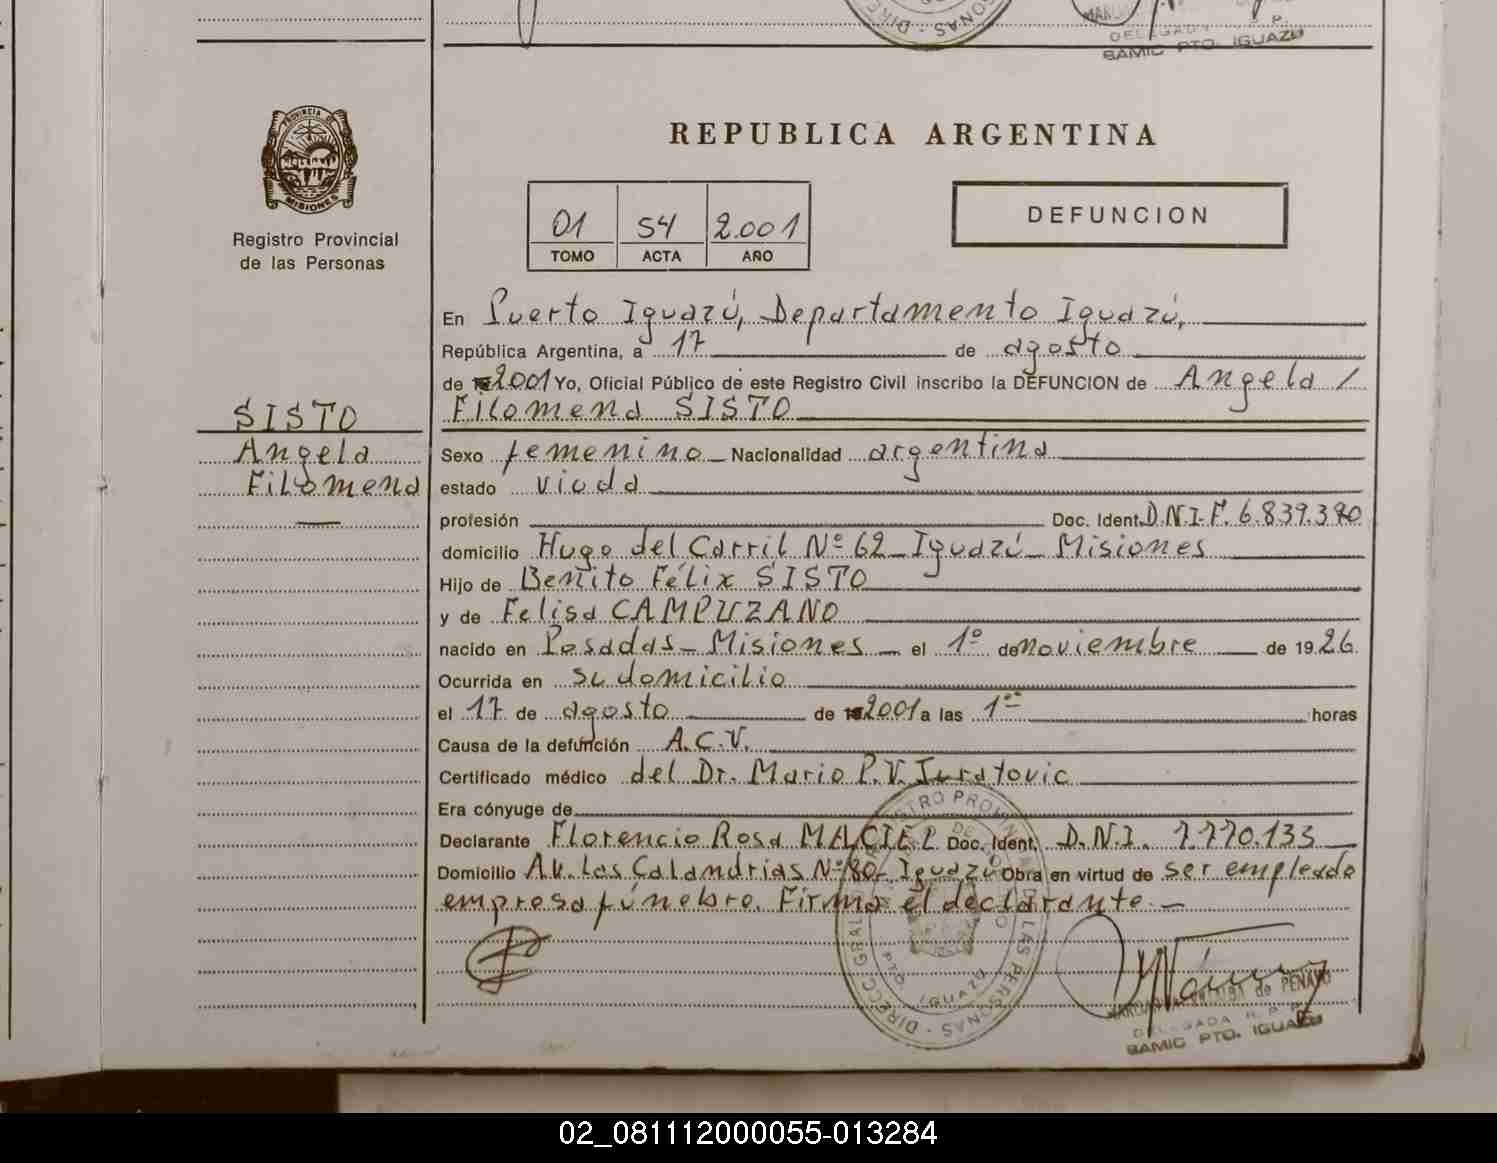 DELEGADA R. P.
SAMIC PTO. IGUAZU
PROVINCIA DE
MISIONES
Registro Provincial
de las Personas
REPUBLICA ARGENTINA
01 54 2.001
TOMO ACTA AÑO
DEFUNCION
En Puerto Iguazú, Departamento Iguazú,
República Argentina, a 17 de agosto
de 2001 Yo, Oficial Público de este Registro Civil inscribo la DEFUNCION de Angela /
Filomena SISTO
SISTO
Angela
Filomena
Sexo femenino Nacionalidad argentina
estado viuda
profesión Doc. Ident. D.N.I.F. 6.839.390
domicilio Hugo del Carril Nº 62 - Iguazú - Misiones
Hijo de Benito Félix SISTO
y de Felisa CAMPUZANO
nacido en Posadas - Misiones - el 1º de noviembre de 1926
Ocurrida en su domicilio
el 17 de agosto de 2001 a las 1 horas
Causa de la defunción A.C.V.
Certificado médico del Dr. Mario P.V. Juratovic
Era cónyuge de
Declarante Florencio Rosa MACIEL Doc. Ident. D.N.I. 7.770.133
Domicilio Av. Las Calandrias Nº 80 - Iguazú Obra en virtud de ser empleado
empresa fúnebre. Firma el declarante.-
DIREC. GRAL. REGISTRO PROVINCIAL DE LAS PERSONAS
PTO. IGUAZU
de PENAYO
DELEGADA R. P. P.
SAMIC PTO. IGUAZU
02_081112000055-013284